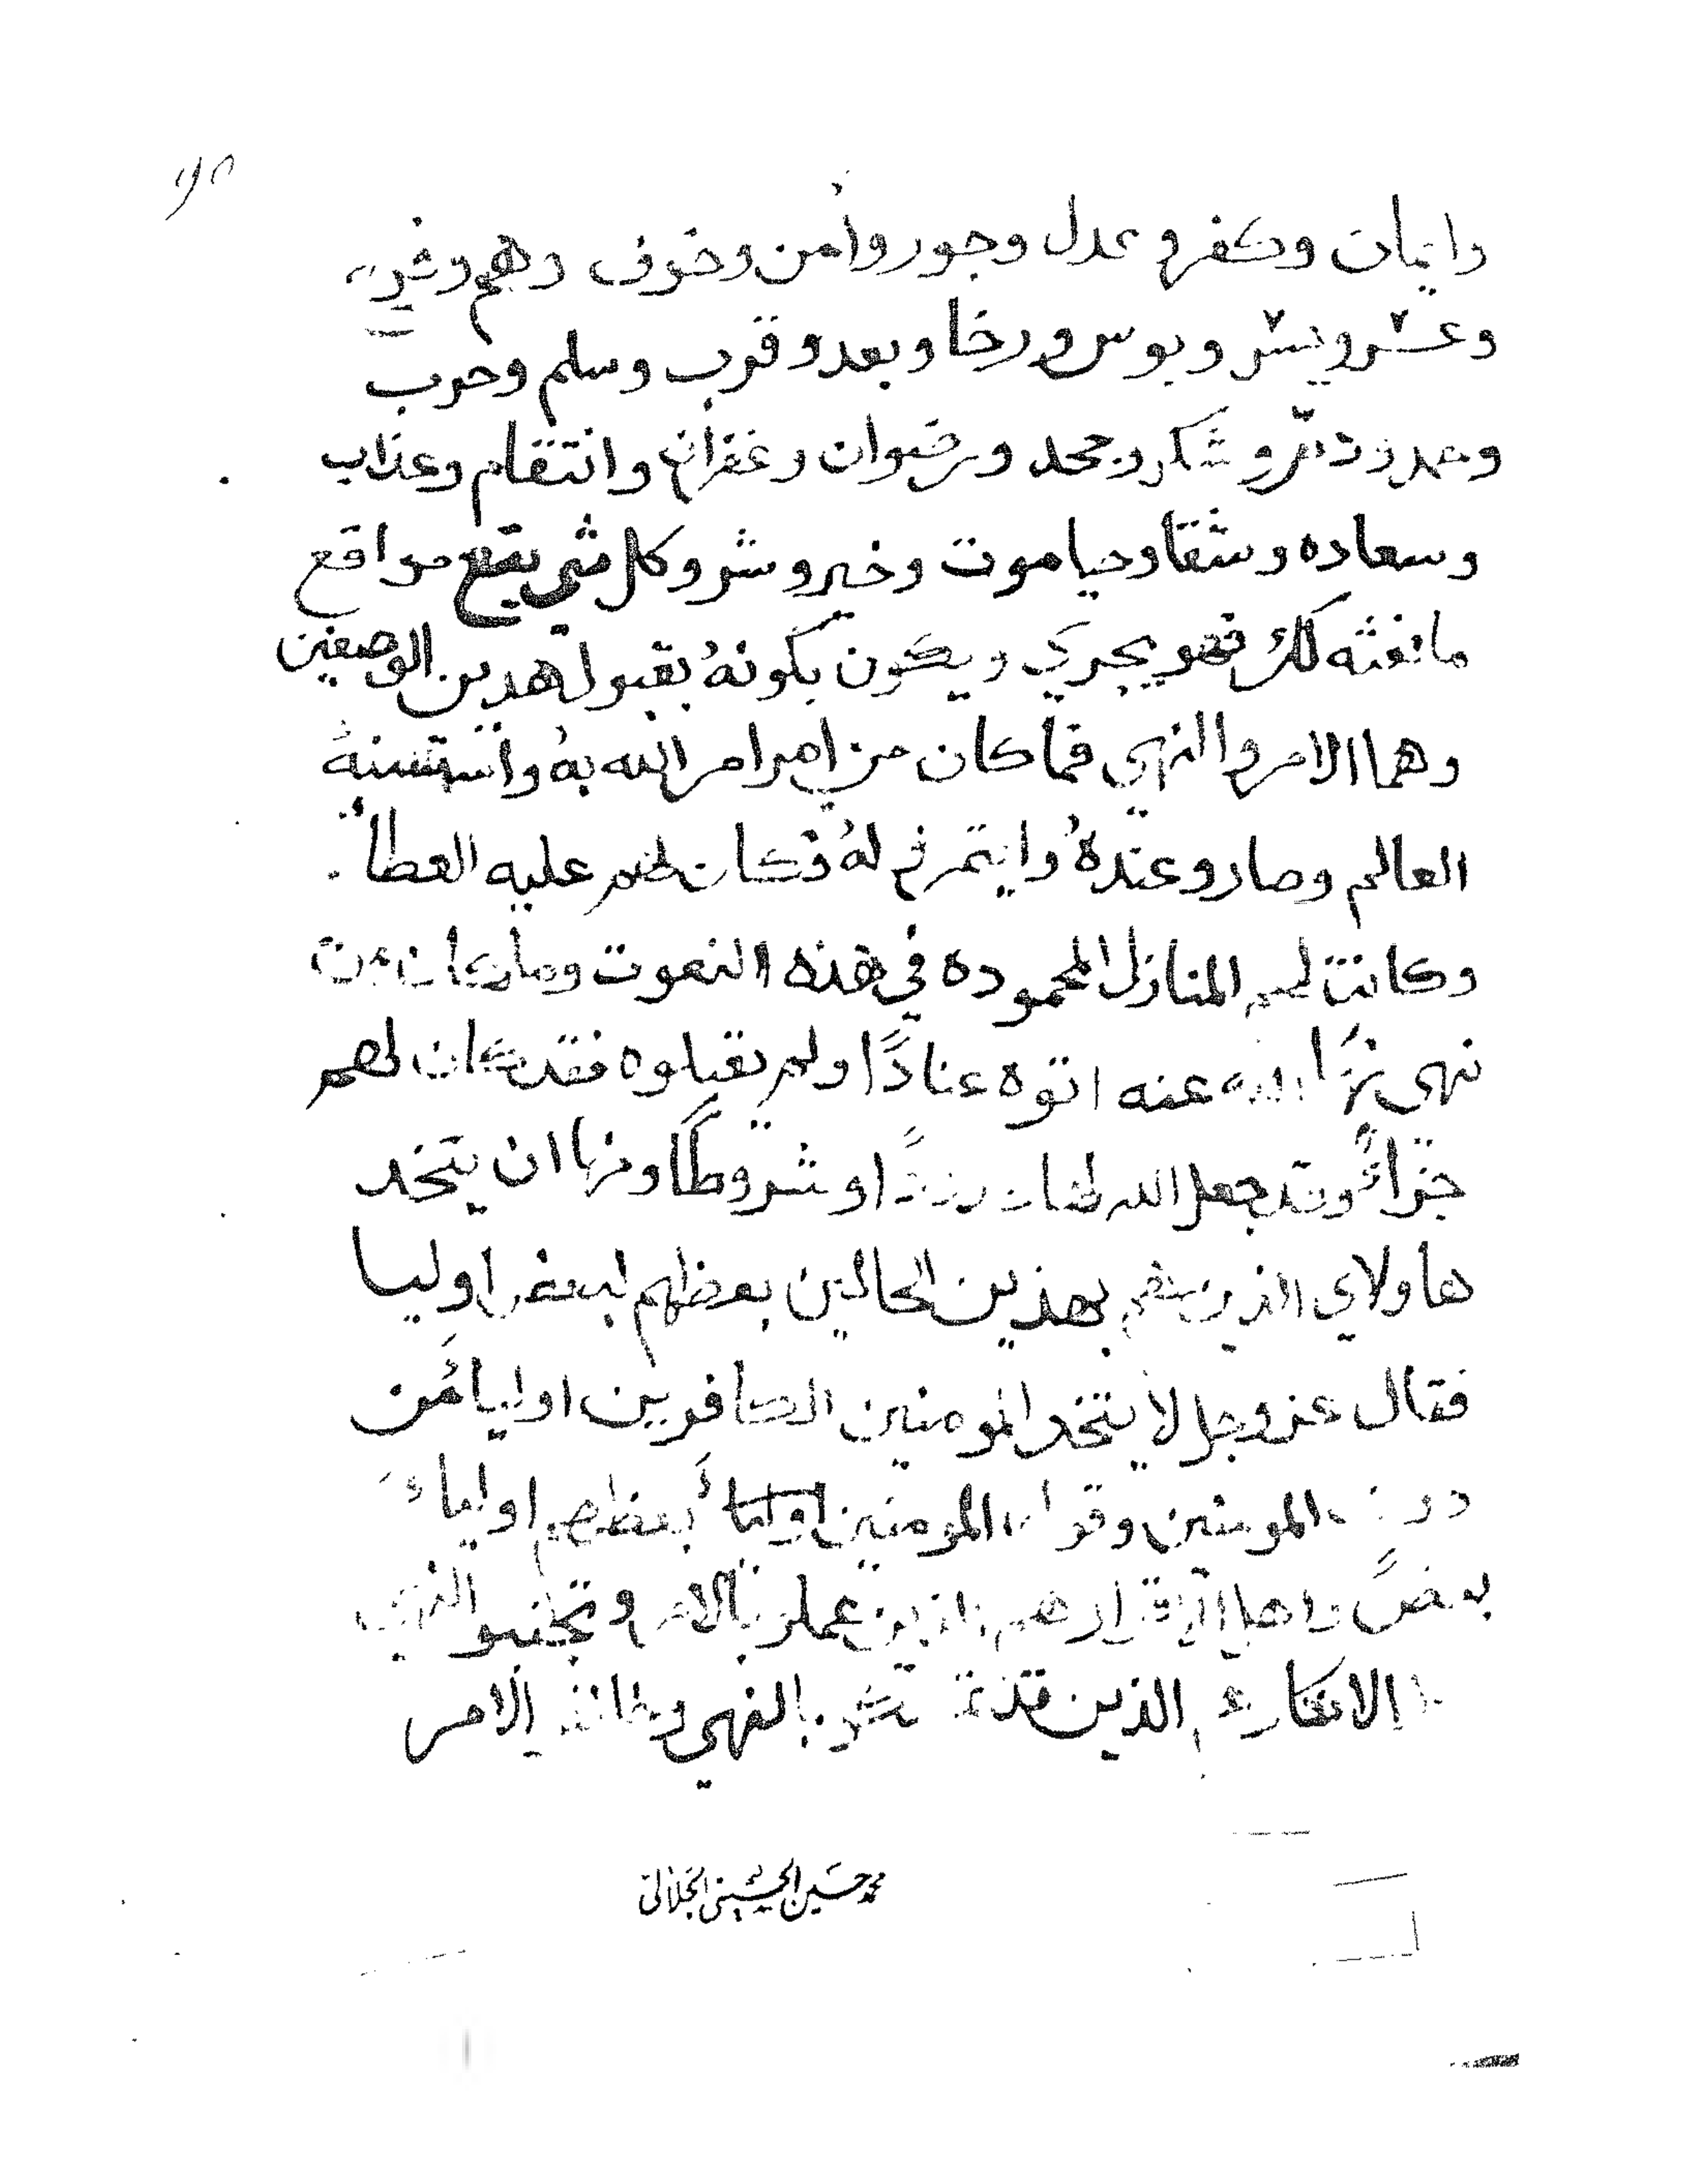 وايمان وكفر و عدل وجور وأمن وخوف وهم
وعسر ويسر وبوس ورخا وبعد وقرب وسلم وحرب
وشكر وجحد ورضوان وغفران وانتقام وعذاب
وسعاده وشقا وحيا موت وخير وشر وكل شي يقع مواقع
ما نعته لك فهو يجري ويكون بكونهُ بقبول هدين الوصفين
وهما الامر والنهي فما كان من امر امر الله بهُ واستسنهُ
العالم وصارو عندهُ وايتمر لهُ فكان لهم عليه العطأ
وكانت لهم المنازل المحموده في هذه النعوت وما كان من
نهي الله عنه اتوه عنادًا ولم يقبلوه فقد كان لهم
جزاءً وقد جعل الله او شروطًا ونها ان يتخد
هاولاي الذين بهذين الحالين بعظهم لبعض اوليا
فقال عز وجل لا يتخد المومنين الكافرين اولياء من
دون المومنين وقوله المومنين اولياء بعظهم اولياء
بعضً واهل هم الذين عملو بالامر وتجنبو النهي
الانكار الذين بالنهي الامر
محمد حسين الحسيني الجلالي